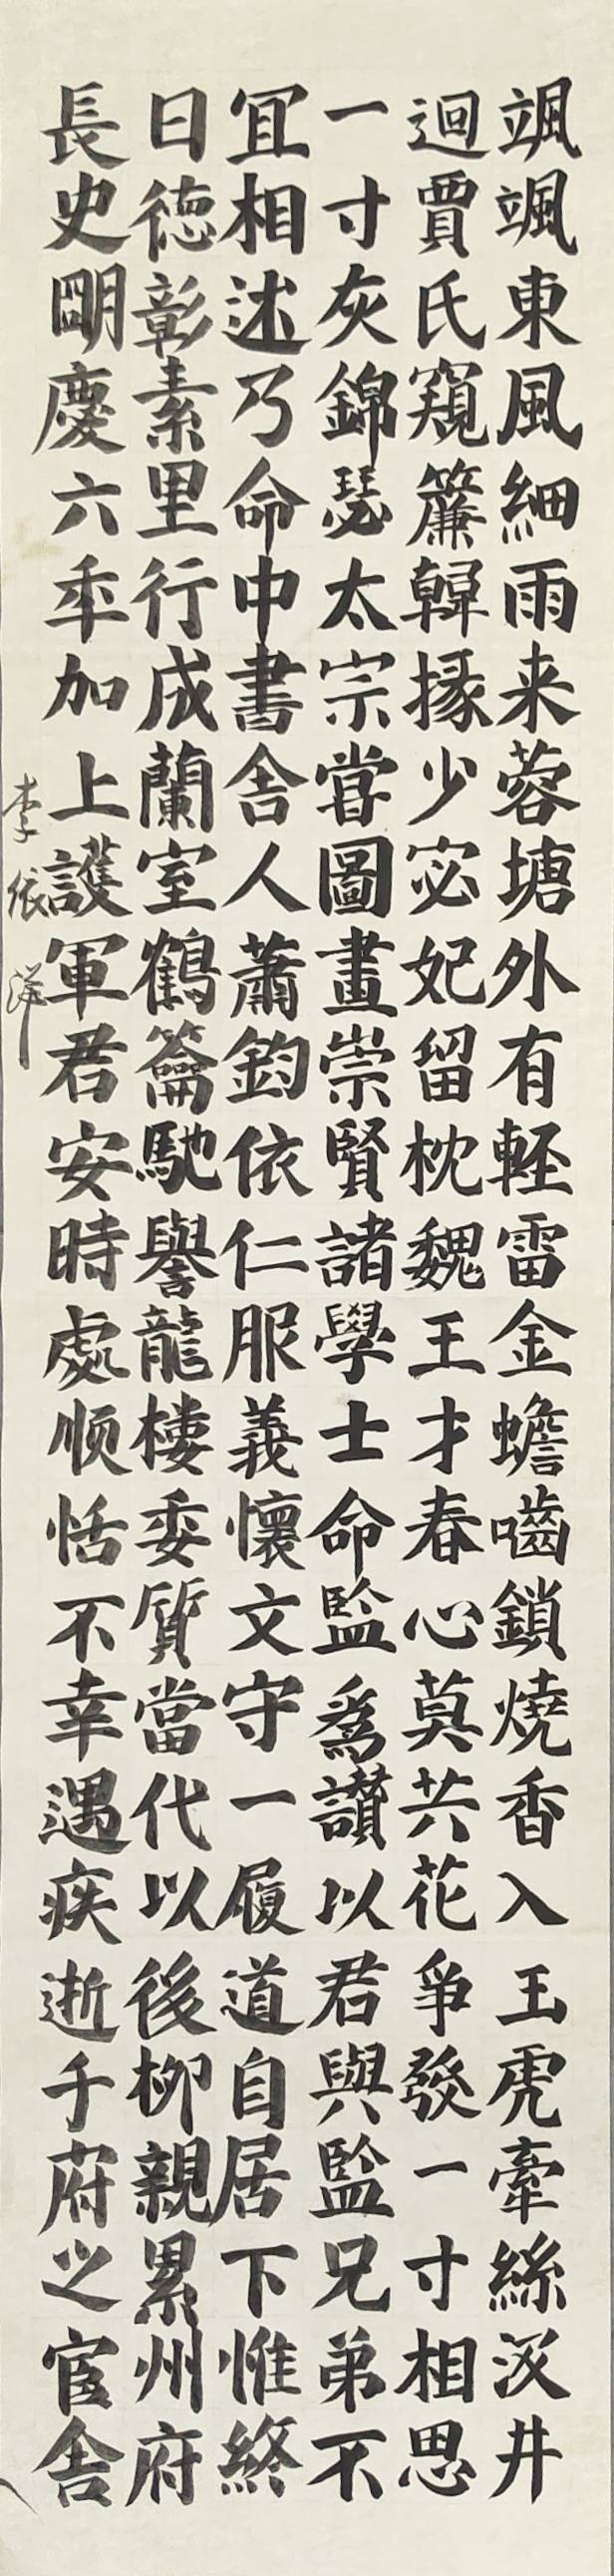 颯颯東風細雨来蓉塘外有軽雷金蟾嚙鎖燒香入王虎牽絲汲井
迴賈氏窺簾韓掾少宓妃留枕魏王才春心莫共花爭發一寸相思
一寸灰錦瑟太宗嘗圖畫崇賢諸學士命監為讃以君與監兄弟不
冝相述乃命中書舎人蕭鈞依仁服義懷文守一履道自居下惟終
日徳彰素里行成蘭室鶴籥馳譽龍樓委質當代以後栁親累州府
長史明慶六年加上護軍君安時處顺恬不幸遇疾逝于府之宦舎
李依洋